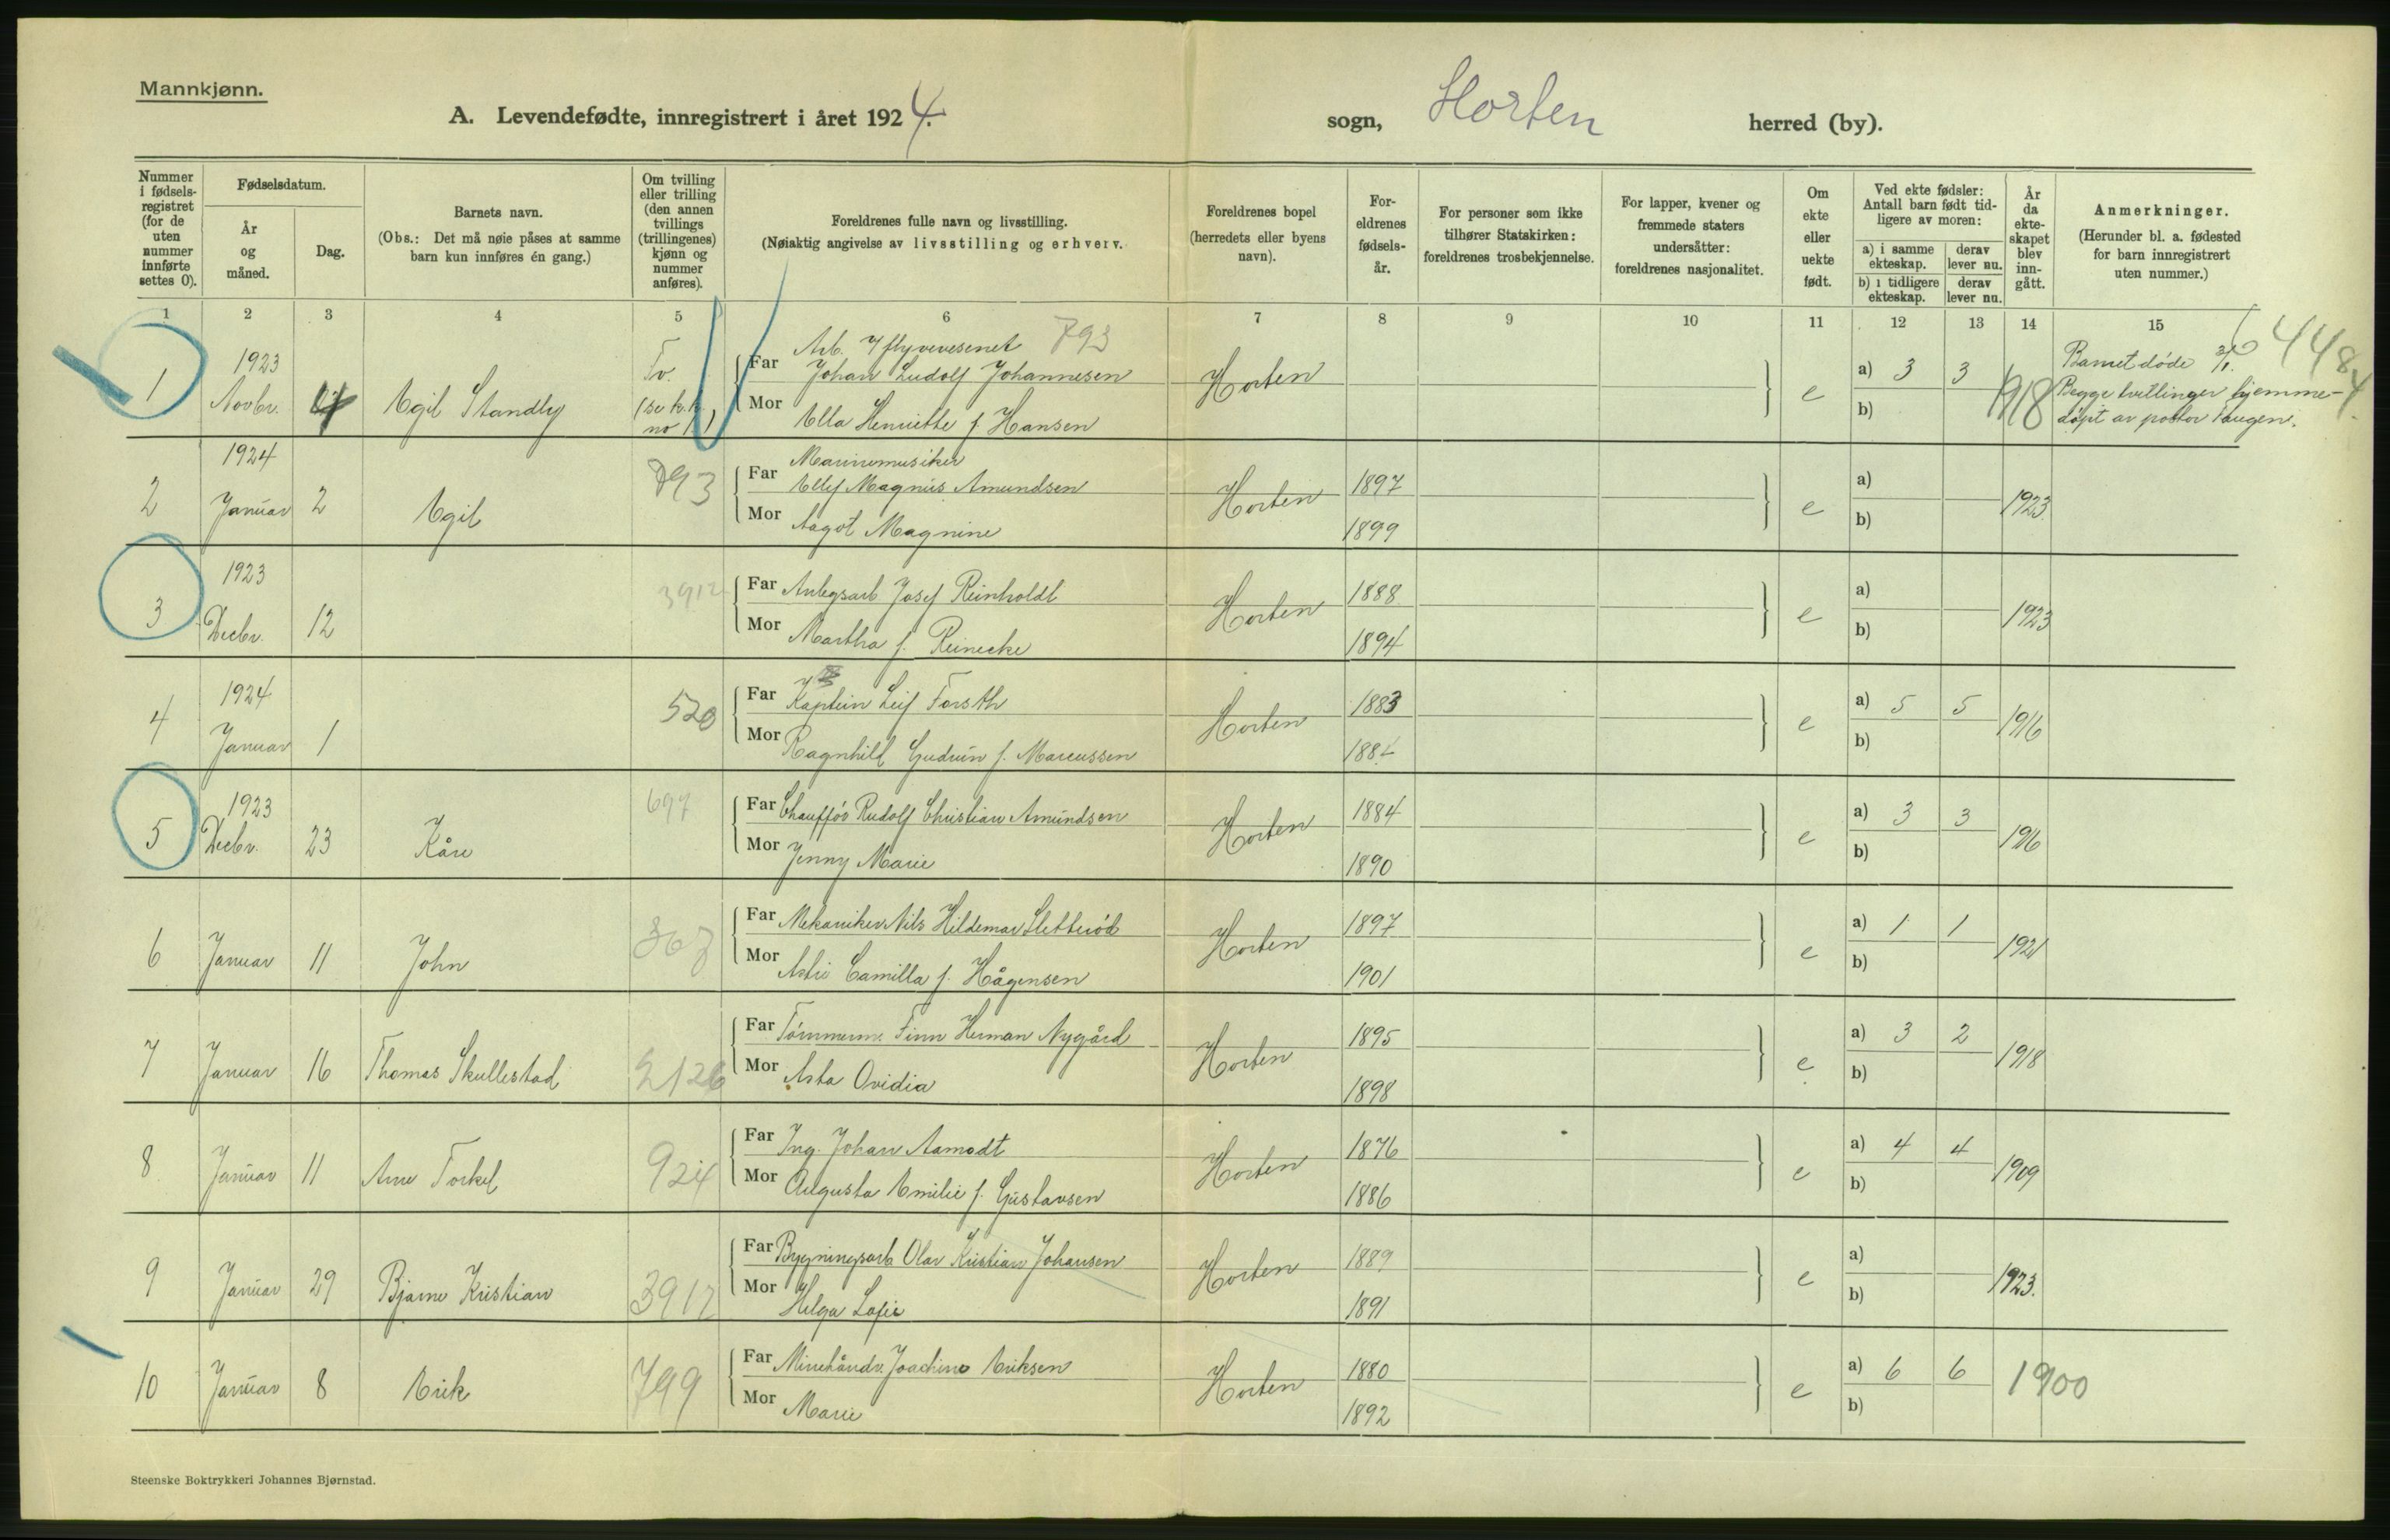 Mannkjønn.
A. Levendefødte, innregistrert i året 1924. sogn, Horten herred (by).
Nummer i fødsels-registret (for de uten nummer innførte settes 0).
Fødselsdatum.
År og måned.
Dag.
Barnets navn.
(Obs.: Det må nøie påses at samme barn kun innføres én gang.)
Om tvilling eller trilling (den annen tvillings (trillingenes) kjønn og nummer anføres).
Foreldrenes fulle navn og livsstilling.
(Nøiaktig angivelse av livsstilling og erhverv.
Foreldrenes bopel (herredets eller byens navn).
For-eldrenes fødsels-år.
For personer som ikke tilhører Statskirken: foreldrenes trosbekjennelse.
For lapper, kvener og fremmede staters undersåtter: foreldrenes nasjonalitet.
Om ekte eller uekte født.
Ved ekte fødsler: Antall barn født tid-ligere av moren:
a) i samme ekteskap. derav lever nu.
b) i tidligere ekteskap. derav lever nu.
År da ekte-skapet blev inn-gått.
Anmerkninger.
(Herunder bl. a. fødested for barn innregistrert uten nummer.)
1 2 3 4 5 6 7 8 9 10 11 12 13 14 15
1 1923 Novbr. Egil Standly Tv.
Arb. v flyvevesenet 793
Far Johan Ludolf Johannesen Horten e a) 3 3 1918
Mor Ella Henriette f. Hansen b)
Barnet døde
Begge tvillinger hjemme-
døpt av pastor Haugen.
4484
2 1924 Januar 2 Egil 793
Marinemusiker
Far Ellef Magnus Amundsen Horten 1897 e a) 1923
Mor Aagot Magnine 1899 b)
3 1923 Decbr. 12 3912
Far Anlegsarb Josef Reinholdt Horten 1888 e a) 1923
Mor Martha f. Reinecke 1894 b)
4 1924 Januar 1 520
Far Kaptein Leif Forsth Horten 1883 e a) 5 5 1916
Mor Ragnhild Gudrun f. Marcussen b)
5 1923 Decbr. 23 Kåre 697
Far Chauffør Rudolf Christian Amundsen Horten 1884 e a) 3 3 1916
Mor Jenny Marie 1890 b)
6 Januar 11 John
Far Mekaniker Nils Hildemar Sletterød Horten 1897 e a) 1 1 1921
Mor Camilla f. Hågensen 1901 b)
7 Januar 16 Thomas Skullestad 2126
Far Tømmerm. Finn Herman Nygård Horten 1895 e a) 3 2 1918
Mor Asta Ovidia 1898 b)
8 Januar 11 Arne Torkel 924
Far Ing. Johan Aamodt Horten 1876 e a) 4 4 1909
Mor Augusta Emilie f. Gustavsen 1886 b)
9 Januar 29 Bjarne Kristian 3912
Far Bygningsarb. Olav Kristian Johansen Horten 1889 e a) 1923.
Mor Helga Sofie 1891 b)
10 Januar 8 Erik 799
Far Minehåndv. Joachim Eriksen Horten 1880 e a) 6 6 1900
Mor Marie 1892 b)
Steenske Boktrykkeri Johannes Bjørnstad.